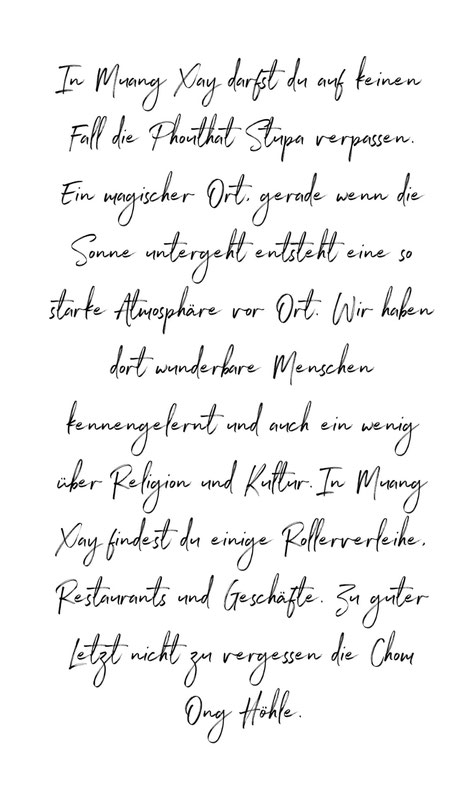 In Muang Xay darfst du auf keinen
Fall die Phouthat Stupa verpassen.
Ein magischer Ort, gerade wenn die
Sonne untergeht entsteht eine so
starke Atmosphäre vor Ort. Wir haben
dort wunderbare Menschen
kennengelernt und auch ein wenig
über Religion und Kultur. In Muang
Xay findest du einige Rollerverleihe,
Restaurants und Geschäfte. Zu guter
Letzt nicht zu vergessen die Chom
Ong Höhle.